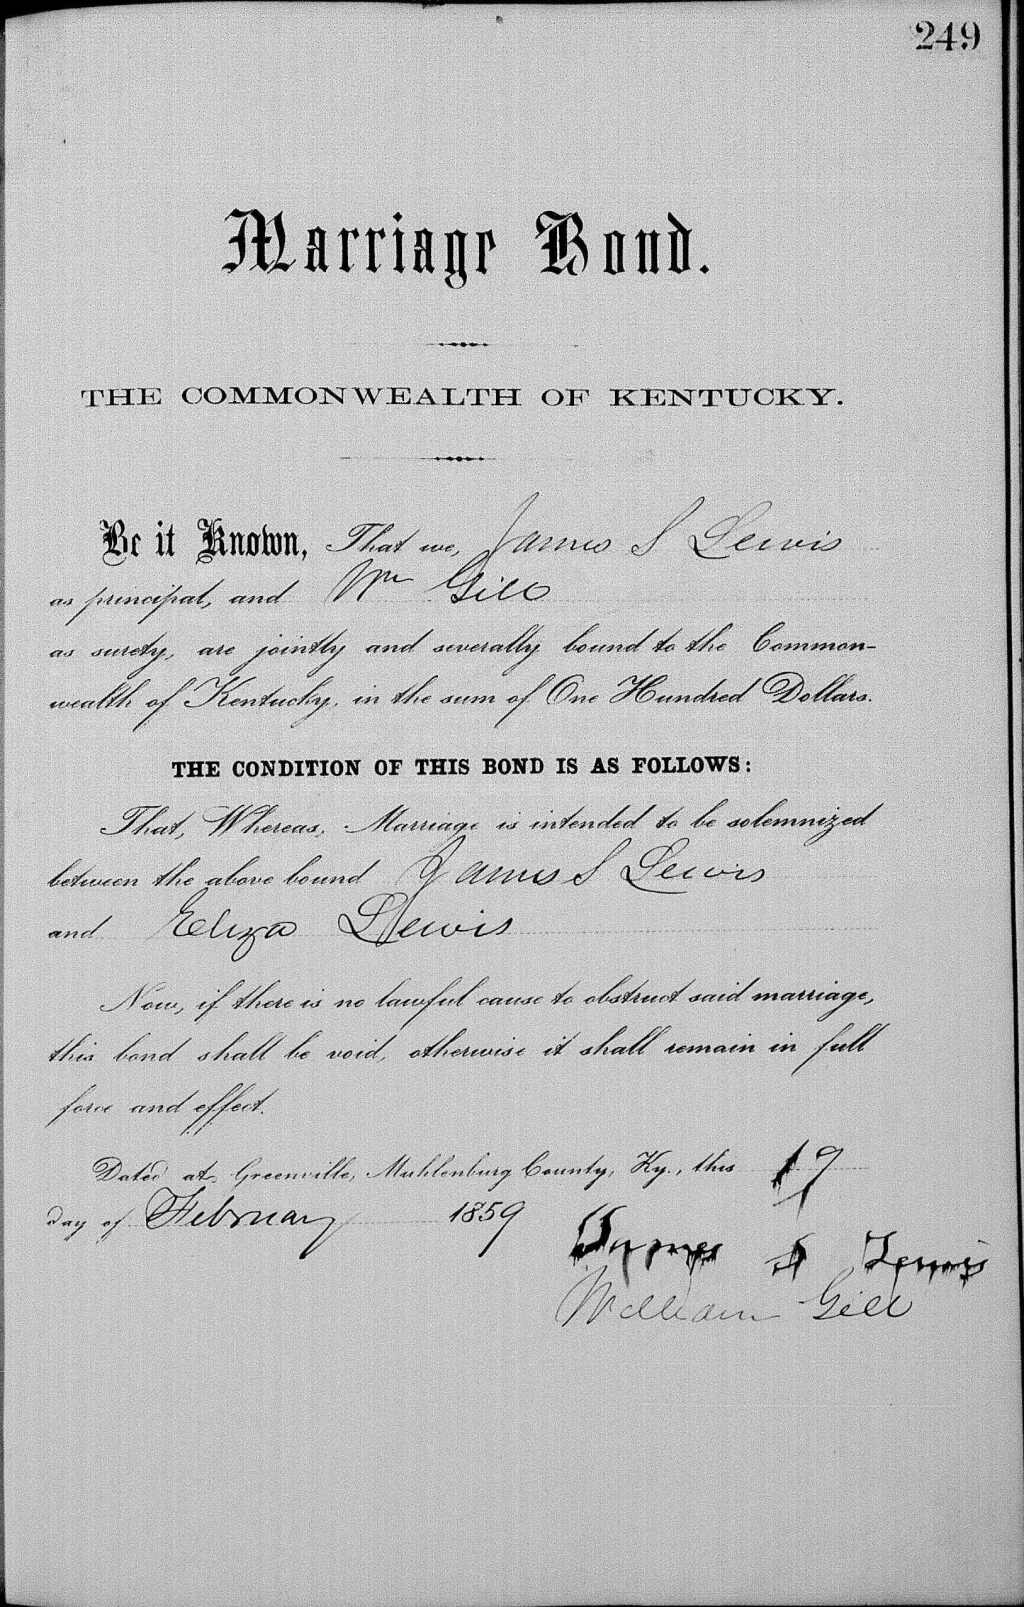 249
Marriage Bond.
THE COMMONWEALTH OF KENTUCKY.
Be it Known, That we, James S Lewis
as principal, and Wm Gill
as surety, are jointly and severally bound to the Common-
wealth of Kentucky, in the sum of One Hundred Dollars.
THE CONDITION OF THIS BOND IS AS FOLLOWS:
That, Whereas, Marriage is intended to be solemnized
between the above bound James S Lewis
and Eliza Lewis
Now, if there is no lawful cause to obstruct said marriage,
this bond shall be void, otherwise it shall remain in full
force and effect.
Dated at Greenville, Muhlenburg County, Ky., this 19
day of February 1859
James S Lewis
William Gill